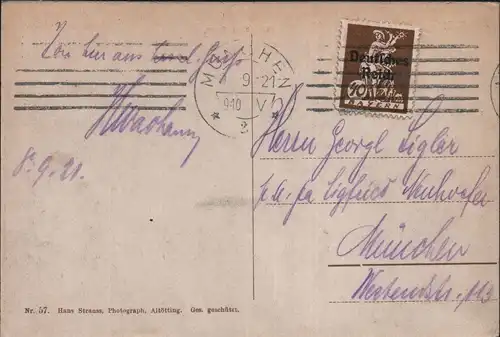 Von hier aus Gruß
8.9.21.
MÜNCHEN
9 21
9-10 V
2
Deutsches
Reich
BAYERN
Herrn Georg Zigler
p. a. fa Sigfried Neuhofer
München
Westendstr. 113
Nr. 57. Hans Strauss, Photograph, Altötting. Ges. geschützt.